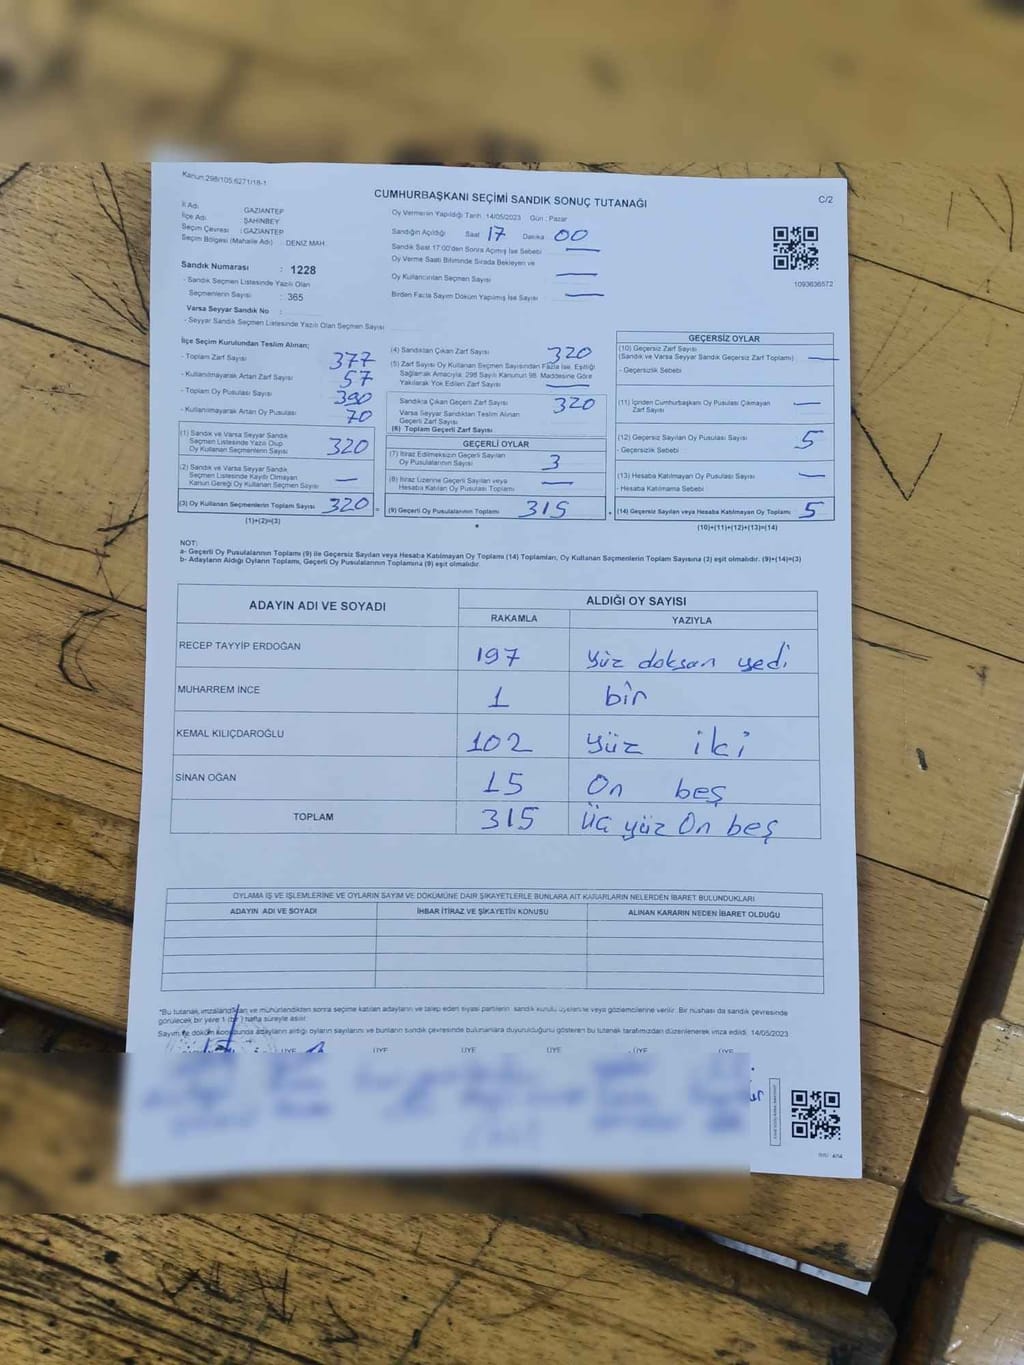 Kanun:298/105,6271/18-1
CUMHURBAŞKANI SEÇİMİ SANDIK SONUÇ TUTANAĞI
C/2
İl Adı : GAZİANTEP
İlçe Adı : ŞAHİNBEY
Seçim Çevresi : GAZİANTEP
Seçim Bölgesi (Mahalle Adı) : DENİZ MAH.
Oy Vermenin Yapıldığı Tarih :14/05/2023 Gün : Pazar
Sandığın Açıldığı Saat 17 Dakika 00
Sandık Saat 17:00'den Sonra Açılmış İse Sebebi —
Oy Verme Saati Bitiminde Sırada Bekleyen ve
Oy Kullandırılan Seçmen Sayısı —
Birden Fazla Sayım Döküm Yapılmış İse Sayısı —
1093636572
Sandık Numarası : 1228
- Sandık Seçmen Listesinde Yazılı Olan
Seçmenlerin Sayısı : 365
Varsa Seyyar Sandık No :
- Seyyar Sandık Seçmen Listesinde Yazılı Olan Seçmen Sayısı
İlçe Seçim Kurulundan Teslim Alınan;
- Toplam Zarf Sayısı 377
- Kullanılmayarak Artan Zarf Sayısı 57
- Toplam Oy Pusulası Sayısı 390
- Kullanılmayarak Artan Oy Pusulası 70
(1) Sandık ve Varsa Seyyar Sandık
Seçmen Listesinde Yazılı Olup
Oy Kullanan Seçmenlerin Sayısı 320
(2) Sandık ve Varsa Seyyar Sandık
Seçmen Listesinde Kayıtlı Olmayan
Kanun Gereği Oy Kullanan Seçmen Sayısı —
(3) Oy Kullanan Seçmenlerin Toplam Sayısı 320
(1)+(2)=(3)
(4) Sandıktan Çıkan Zarf Sayısı 320
(5) Zarf Sayısı Oy Kullanan Seçmen Sayısından Fazla İse, Eşitliği
Sağlamak Amacıyla; 298 Sayılı Kanunun 98. Maddesine Göre
Yakılarak Yok Edilen Zarf Sayısı —
Sandıkta Çıkan Geçerli Zarf Sayısı 320
Varsa Seyyar Sandıktan Teslim Alınan
Geçerli Zarf Sayısı
(6) Toplam Geçerli Zarf Sayısı
GEÇERLİ OYLAR
(7) İtiraz Edilmeksizin Geçerli Sayılan
Oy Pusulalarının Sayısı 3
(8) İtiraz Üzerine Geçerli Sayılan veya
Hesaba Katılan Oy Pusulası Toplamı —
(9) Geçerli Oy Pusulalarının Toplamı 315
GEÇERSİZ OYLAR
(10) Geçersiz Zarf Sayısı
(Sandık ve Varsa Seyyar Sandık Geçersiz Zarf Toplamı) —
- Geçersizlik Sebebi
(11) İçinden Cumhurbaşkanı Oy Pusulası Çıkmayan
Zarf Sayısı —
(12) Geçersiz Sayılan Oy Pusulası Sayısı 5
- Geçersizlik Sebebi
(13) Hesaba Katılmayan Oy Pusulası Sayısı —
- Hesaba Katılmama Sebebi
(14) Geçersiz Sayılan veya Hesaba Katılmayan Oy Toplamı 5
(10)+(11)+(12)+(13)=(14)
NOT:
a- Geçerli Oy Pusulalarının Toplamı (9) ile Geçersiz Sayılan veya Hesaba Katılmayan Oy Toplamı (14) Toplamları, Oy Kullanan Seçmenlerin Toplam Sayısına (3) eşit olmalıdır. (9)+(14)=(3)
b- Adayların Aldığı Oyların Toplamı, Geçerli Oy Pusulalarının Toplamına (9) eşit olmalıdır.
ADAYIN ADI VE SOYADI
ALDIĞI OY SAYISI
RAKAMLA YAZIYLA
RECEP TAYYİP ERDOĞAN 197 yüz doksan yedi
MUHARREM İNCE 1 bir
KEMAL KILIÇDAROĞLU 102 yüz iki
SİNAN OĞAN 15 On beş
TOPLAM 315 Üç yüz On beş
OYLAMA İŞ VE İŞLEMLERİNE VE OYLARIN SAYIM VE DÖKÜMÜNE DAİR ŞİKAYETLERLE BUNLARA AİT KARARLARIN NELERDEN İBARET BULUNDUKLARI
ADAYIN ADI VE SOYADI İHBAR İTİRAZ VE ŞİKAYETİN KONUSU ALINAN KARARIN NEDEN İBARET OLDUĞU
*Bu tutanak, imzalandıktan ve mühürlendikten sonra seçime katılan adayların ve talep eden siyasi partilerin sandık kurulu üyelerine veya gözlemcilerine verilir. Bir nüshası da sandık çevresinde
görülecek bir yere 1 (bir) hafta süreyle asılır.
Sayım ve döküm sonucunda adayların aldığı oyların sayılarını ve bunların sandık çevresinde bulunanlara duyurulduğunu gösteren bu tutanak tarafımızdan düzenlenerek imza edildi. 14/05/2023
ÜYE ÜYE ÜYE ÜYE ÜYE ÜYE